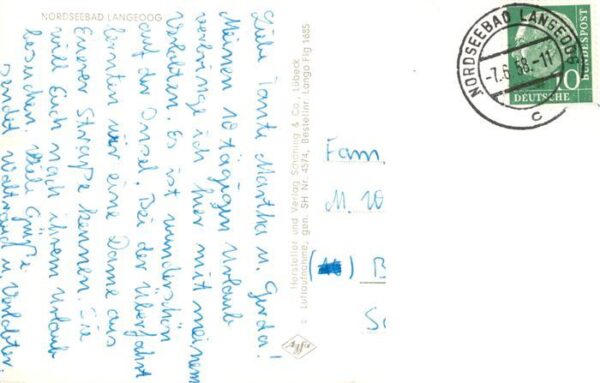 NORDSEEBAD LANGEOOG
Liebe Tante Martha u. Gerda!
Meinen 10 tägigen Urlaub
verbringe ich hier mit meinem
Verlobten. Es ist wunderschön
auf der Insel. Bei der Überfahrt
lernten wir eine Dame aus
Eurer Straße kennen. Sie
will Euch nach ihrem Urlaub
besuchen. Viele Grüße
sendet Waltraud u. Verlobter.
Hersteller und Verlag Schöning & Co., Lübeck
© Luftaufnahme, gen. SH Nr. 4574, Bestellnr. Lango Flg 5685
Fam.
M. 10
( ) B
Sc
NORDSEEBAD LANGEOOG
-7.6.58.-11
c
10
DEUTSCHE
BUNDESPOST